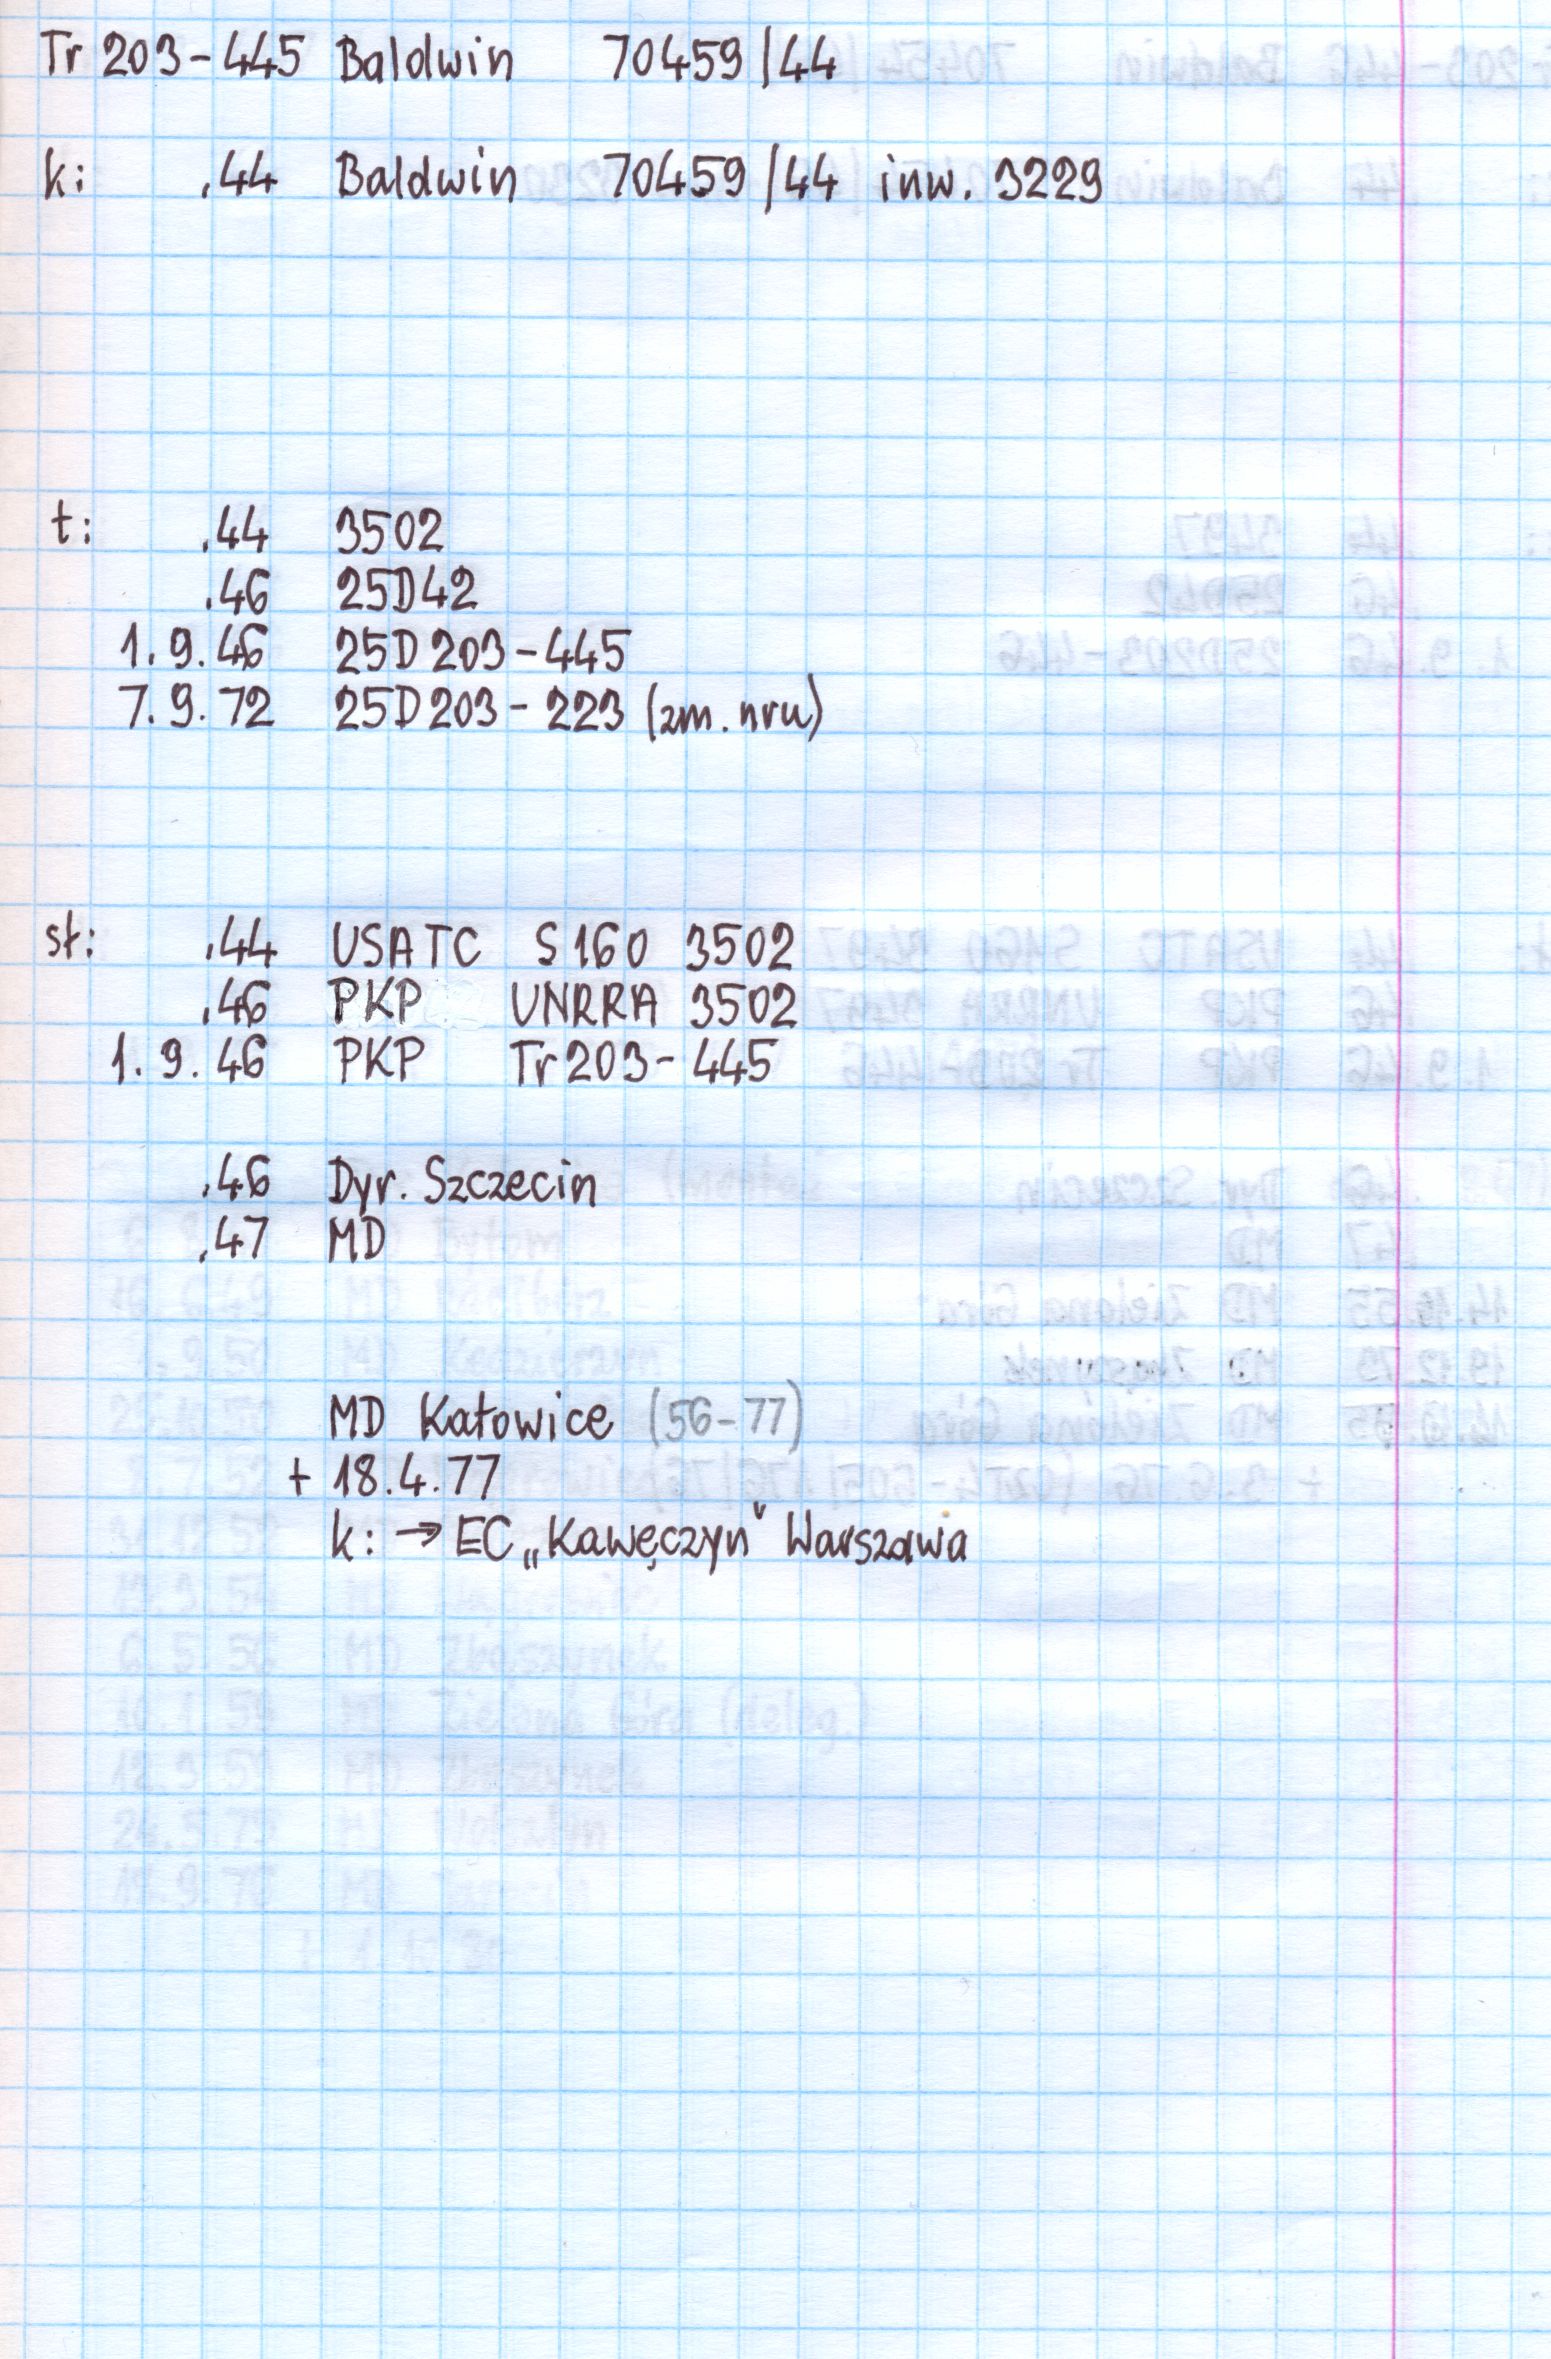 Tr 203-445 Baldwin 70459/44
k: .44 Baldwin 70459/44 inw. 3229
t: .44 3502
.46 25D42
1.9.46 25D203-445
7.9.72 25D203-223 (zm. nru)
sł: .44 USATC S160 3502
.46 PKP UNRRA 3502
1.9.46 PKP Tr203-445
.46 Dyr. Szczecin
.47 MD
MD Katowice (56-77)
+ 18.4.77
k: → EC „Kawęczyn" Warszawa